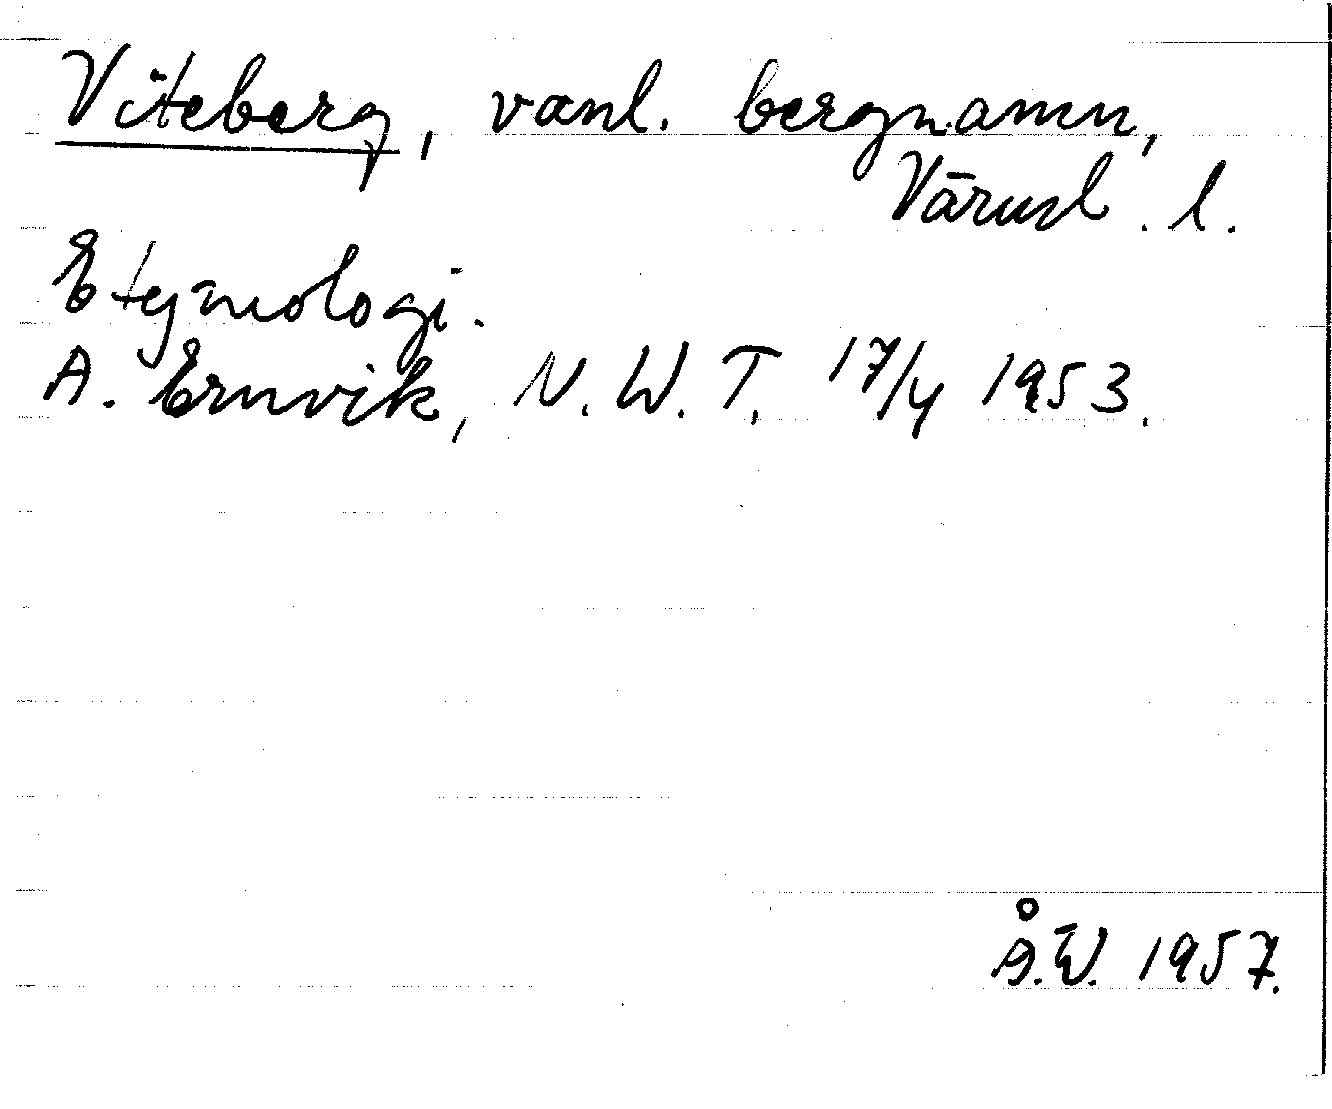 Viteberg, vanl. bergnamn,
Värml. l.
Etymologi.
A. Ernvik, N. W. T. 17/4 1953.
Å.W. 1957.